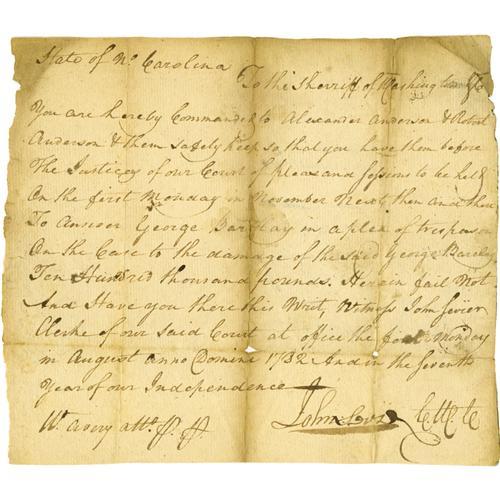 State of No. Carolina
To the Sherriff of Washington
You are hereby Commanded to Alexander Anderson & Robert
Anderson & Them Safely Keep so that you have them before
The Justices of our Court of pleas and Sessions to be held
On the first Monday in November Next then and there
To Answer George Barclay in a plea of trespass on
On the Case to the damage of the Said George Barclay
Ten Hundred thousand pounds. Herein fail Not
And Have you there this Writ, Witness John Sevier
Clerke of our Said Court at office the Monday
in August anno Domini 1782 And in the Seventh
Year of our Independence
Wt. Avery atto.
John Sevier